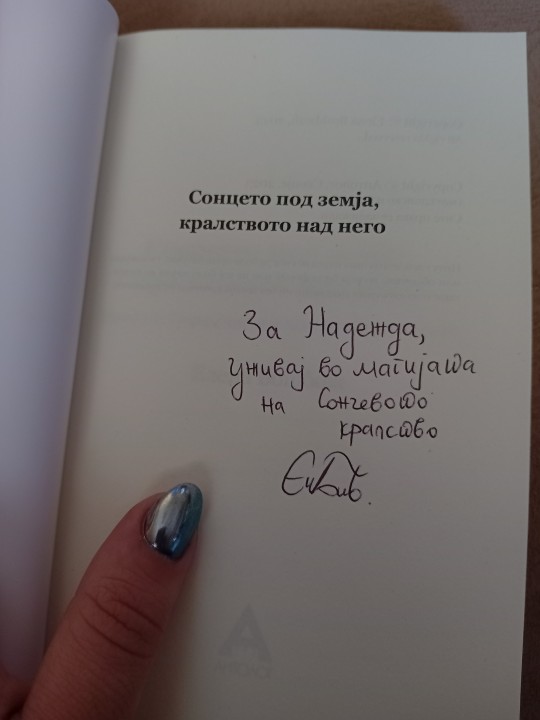 Сонцето под земја,
кралството над него
За Надежда,
уживај во магијата
на Сончевото
кралство